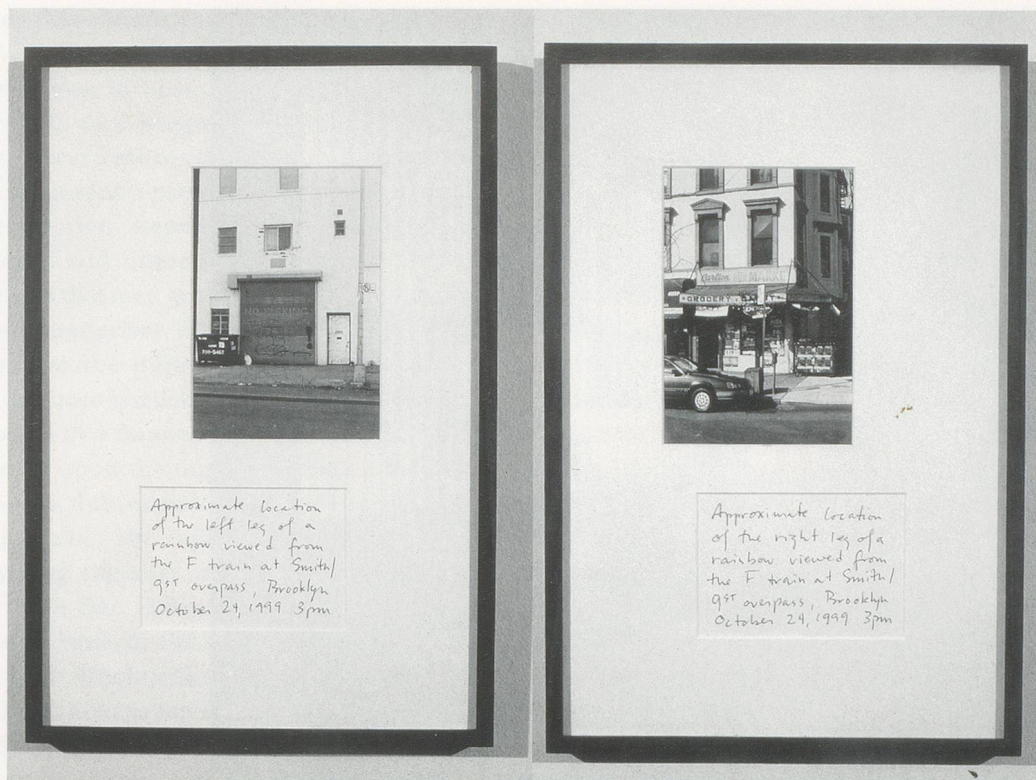 GROCERY
MARKET
Approximate location
of the left leg of a
rainbow viewed from
the F train at Smith/
9ST overpass, Brooklyn
October 24, 1999 3pm
Approximate location
of the right leg of a
rainbow viewed from
the F train at Smith/
9ST overpass, Brooklyn
October 24, 1999 3pm